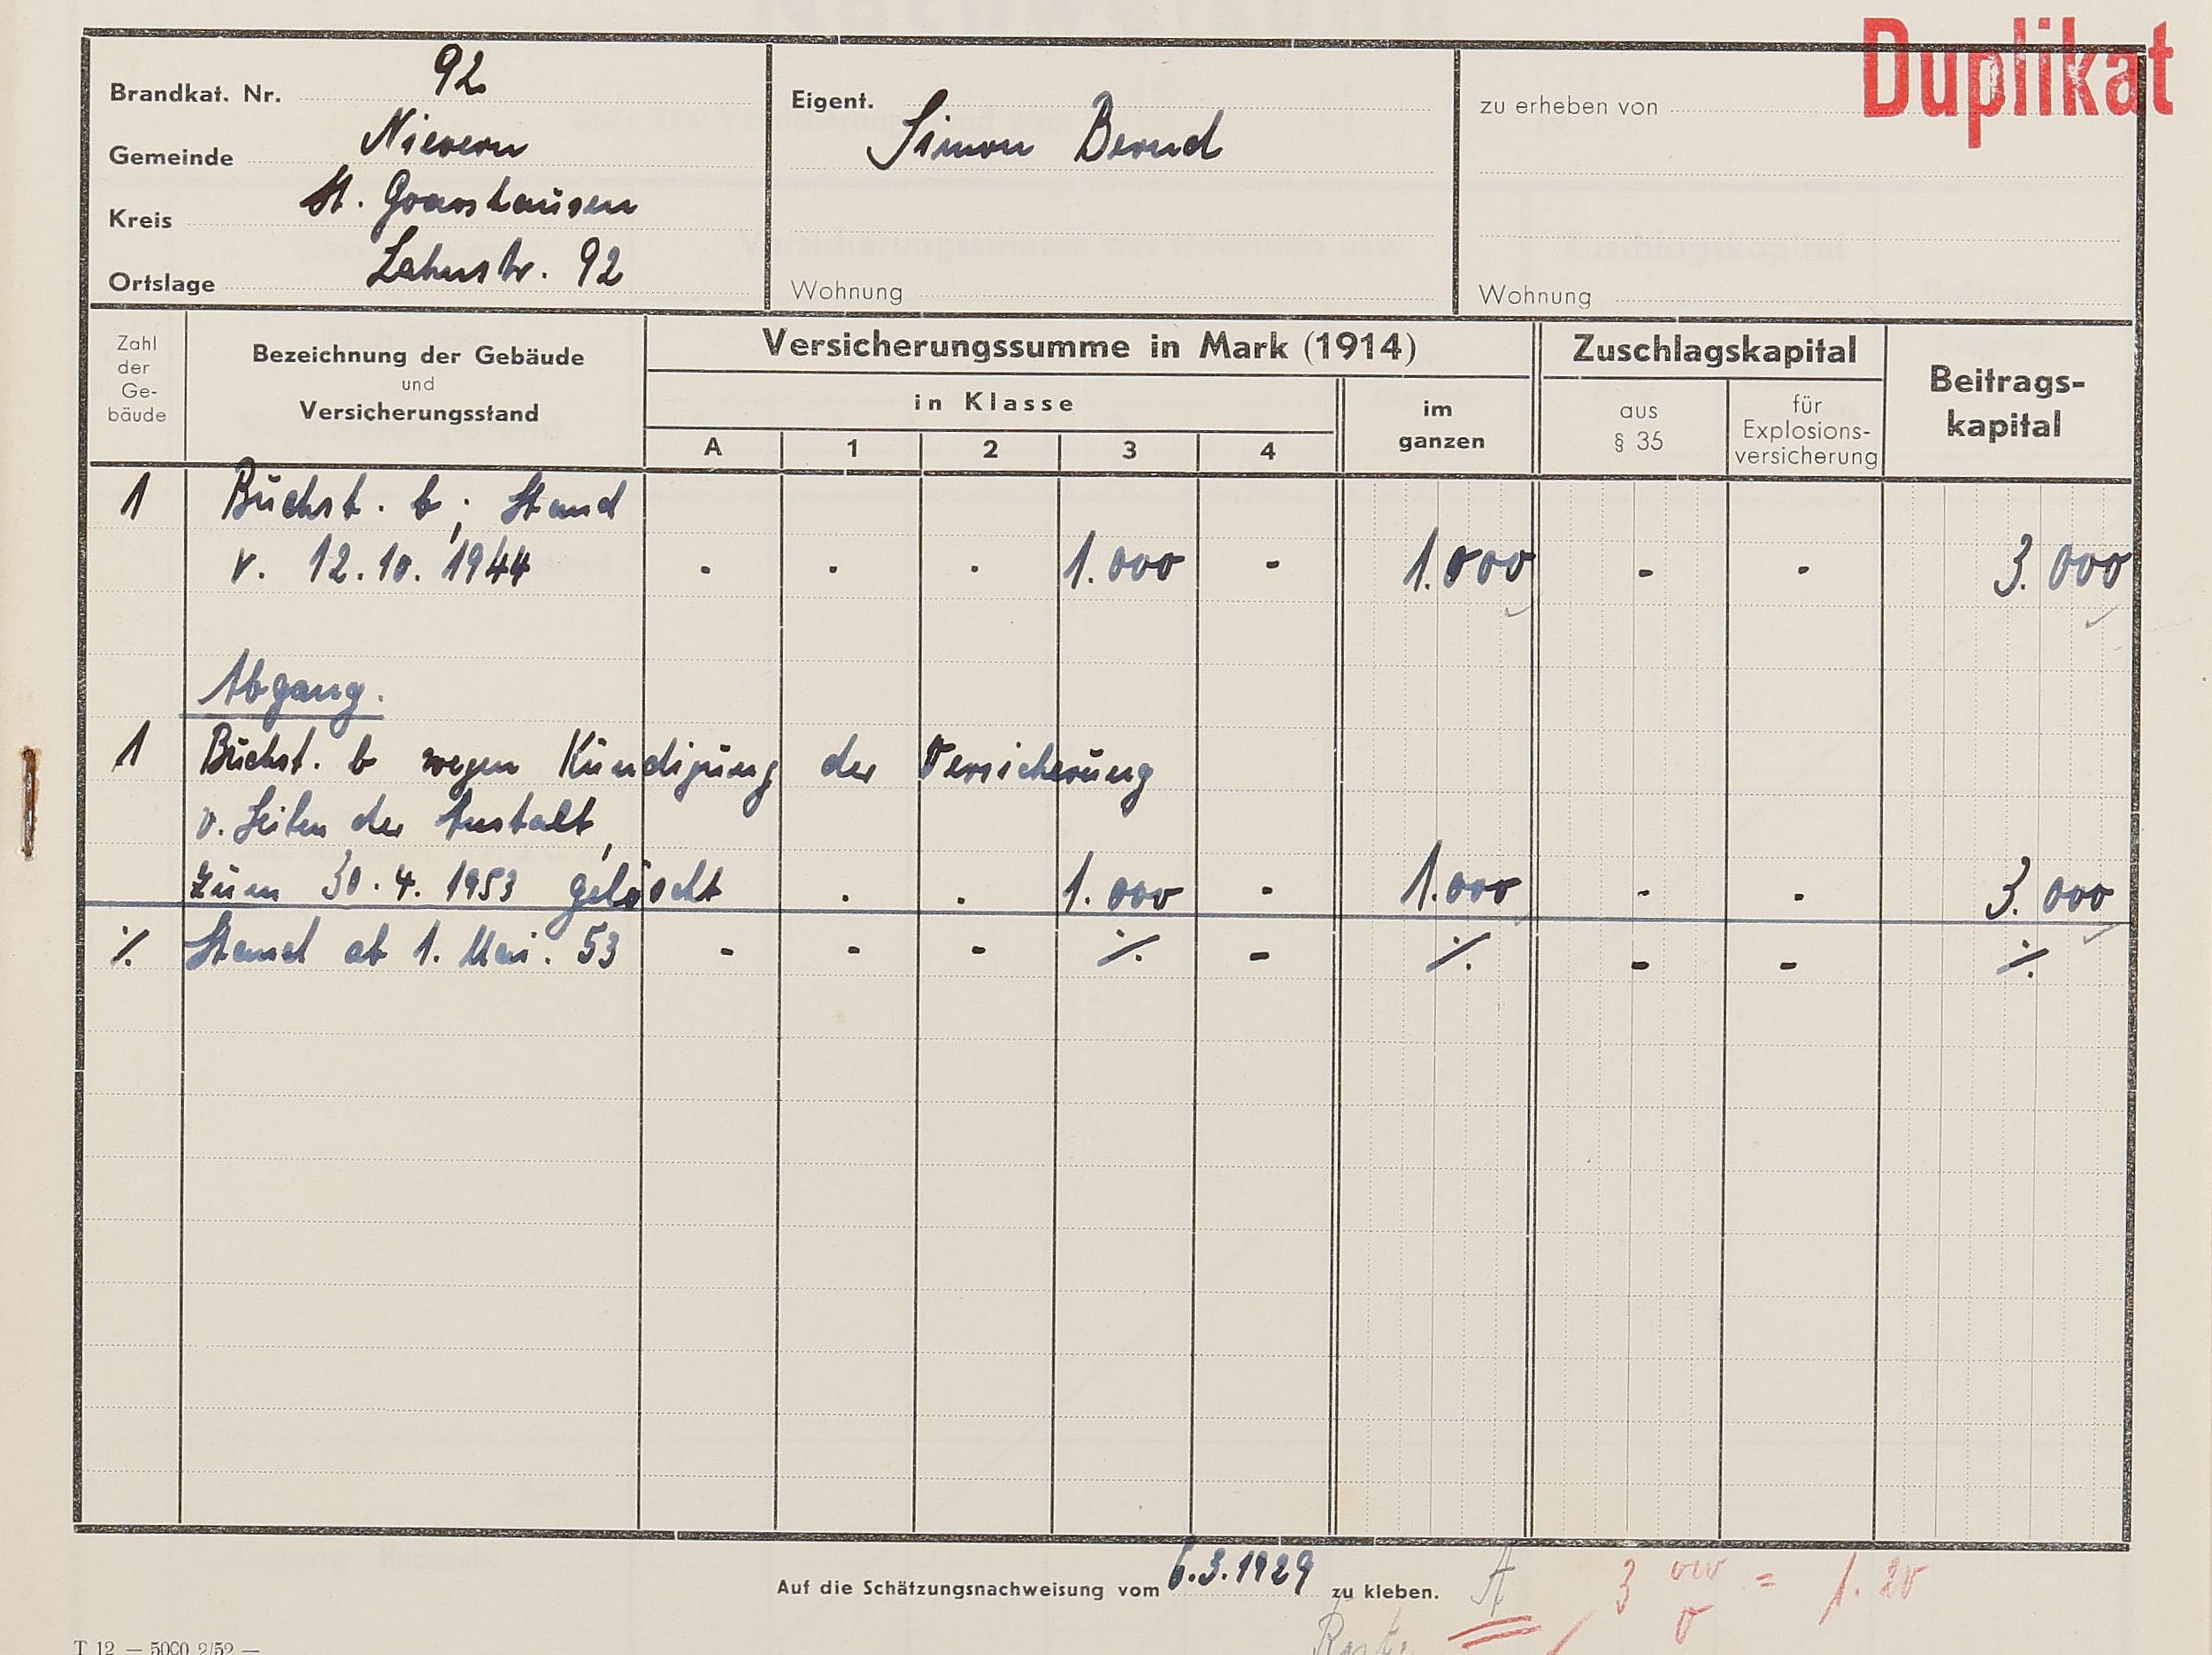 Duplikat
Brandkat. Nr. 92
Gemeinde Nievern
Kreis St. Goarshausen
Ortslage Lahnstr. 92
Eigent.
Simon Bernd
Wohnung
zu erheben von
Wohnung
Zahl
der
Ge-
bäude
Bezeichnung der Gebäude
und
Versicherungsstand
Versicherungssumme in Mark (1914)
in Klasse
A 1 2 3 4
im
ganzen
Zuschlagskapital
aus
§ 35
für
Explosions-
versicherung
Beitrags-
kapital
1 Buchst. b; Stand
v. 12.10.1944 - - - 1.000 - 1.000 - - 3.000
Abgang.
1 Buchst. b wegen Kündigung der Versicherung
v. Seiten der Anstalt,
zum 30.4.1953 gelöscht . . 1.000 - 1.000 - - 3.000
⁒ Stand ab 1. Mai. 53 - - - ⁒ - ⁒ - - ⁒
Auf die Schätzungsnachweisung vom 6.3.1929 zu kleben.
A
= 1.20
T 12 — 5000 2/52 —